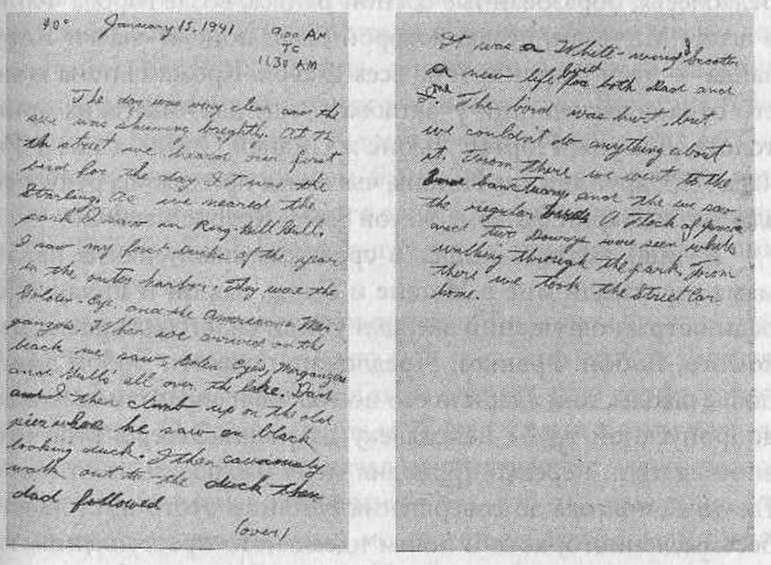 40° January 15, 1941
9:00 AM
TO
11:30 AM
The day was very clear and the
sun was shinning brightly. At
th street we heard our first
bird for the day. It was the
Starling. As we neared the
park I saw an Ring-bill Gull.
I saw my first Ducks of the year
in the outer harbor. They were the
Golden-Eye and the American Mer-
ganzers. When we arrived on the
beach we saw Golen Eyes, Merganzers
and Gulls all over the lake. Dad
and I then climb up on the old
pier where he saw an black
looking duck. I then caucously
walk out to the duck then
dad followed
(over)
It was a White-winged Scooter
a new life bird for both Dad and
I. The bird was hurt, but
we couldn't do anything about
it. From there we went to the
Sanctuary and the we saw
the regular birds. A flock of
and two Downys were seen while
walking through the park. From
there we took the Street Car
home.